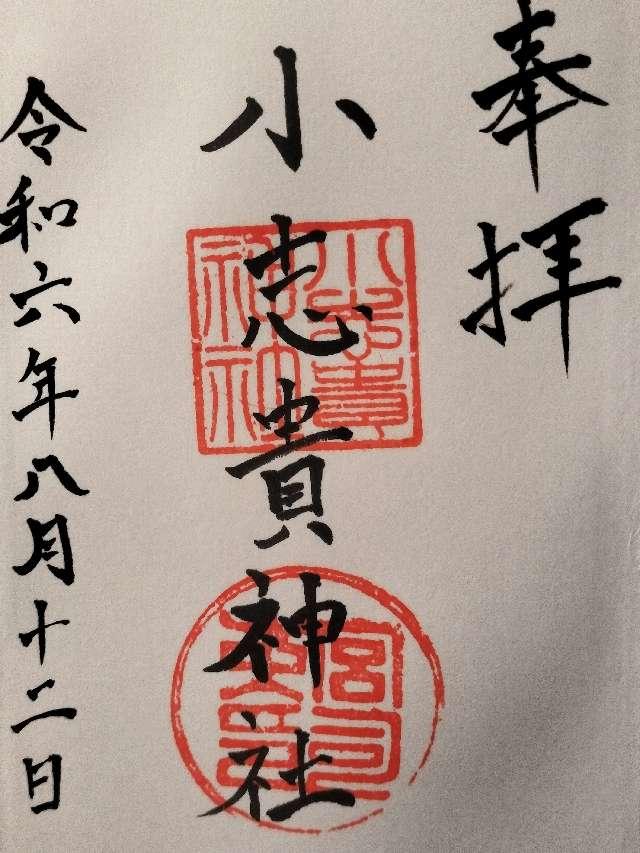 奉拝
小志貴神社
小志貴
神社
令和六年八月十二日